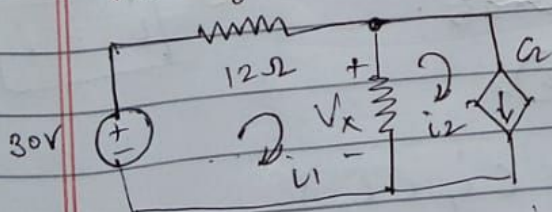 12Ω
+
30V
+
-
Vx
i1
-
i2